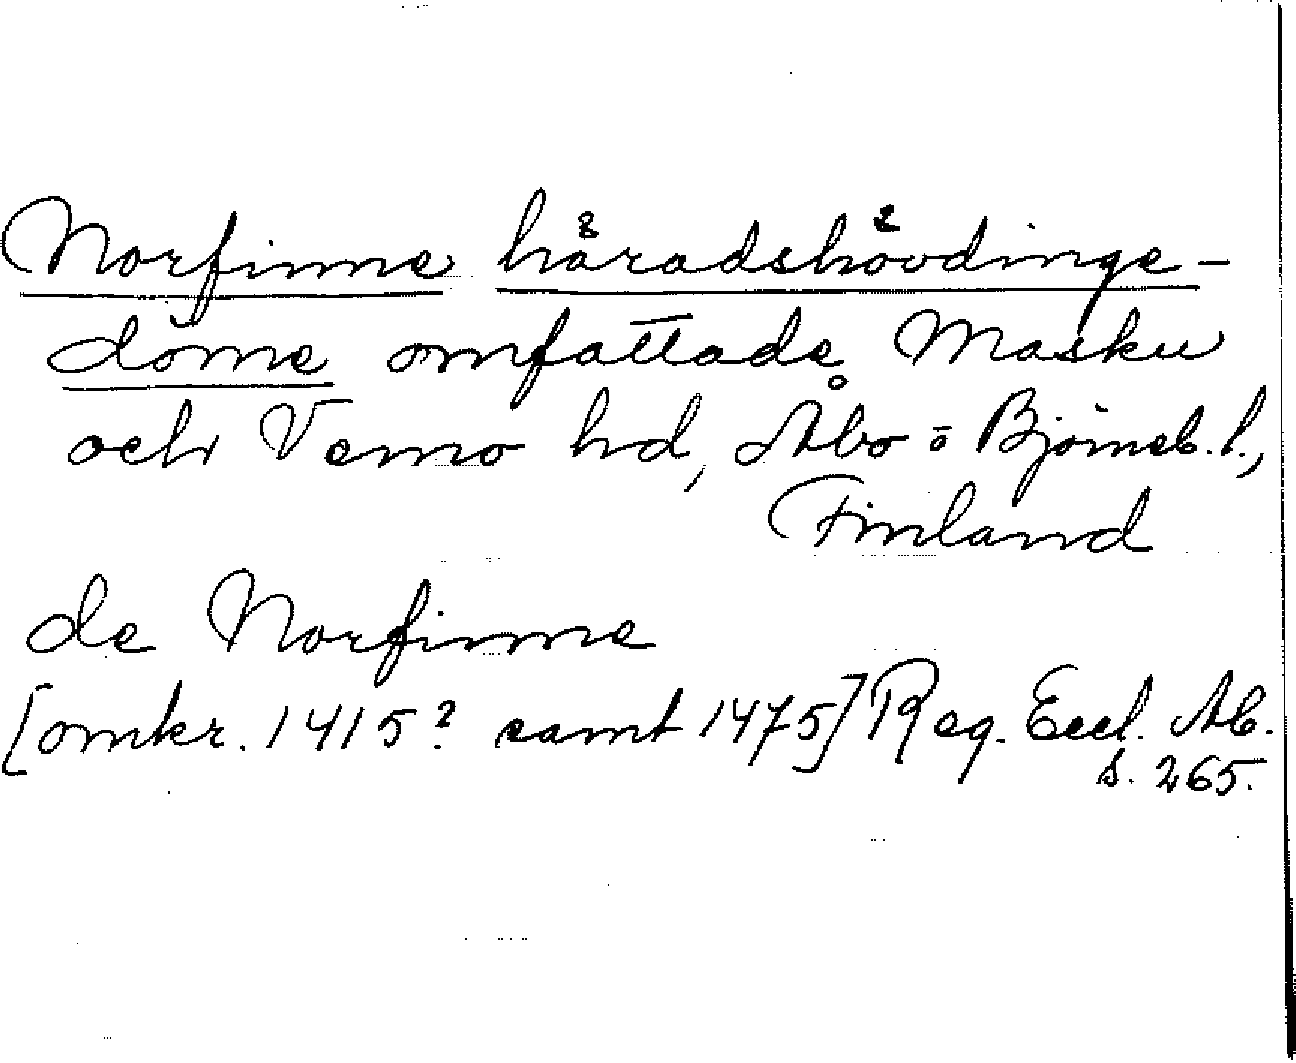 Norfinne häradshövdinge-
döme omfattade Masku
och Vemo hd, Åbo o Björneb. l.,
Finland
de Norfinne
[omkr. 1415? samt 1475] Reg. Eccl. Ab.
s. 265.